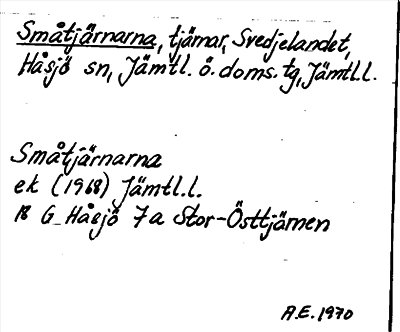 Småtjärnarna, tjärnar, Svedjelandet,
Håsjö sn, Jämtl. ö. doms. tg, Jämtl.l.
Småtjärnarna
ek (1968) Jämtl.l.
18 G Håsjö 7a Stor-Östtjärnen
A.E. 1970